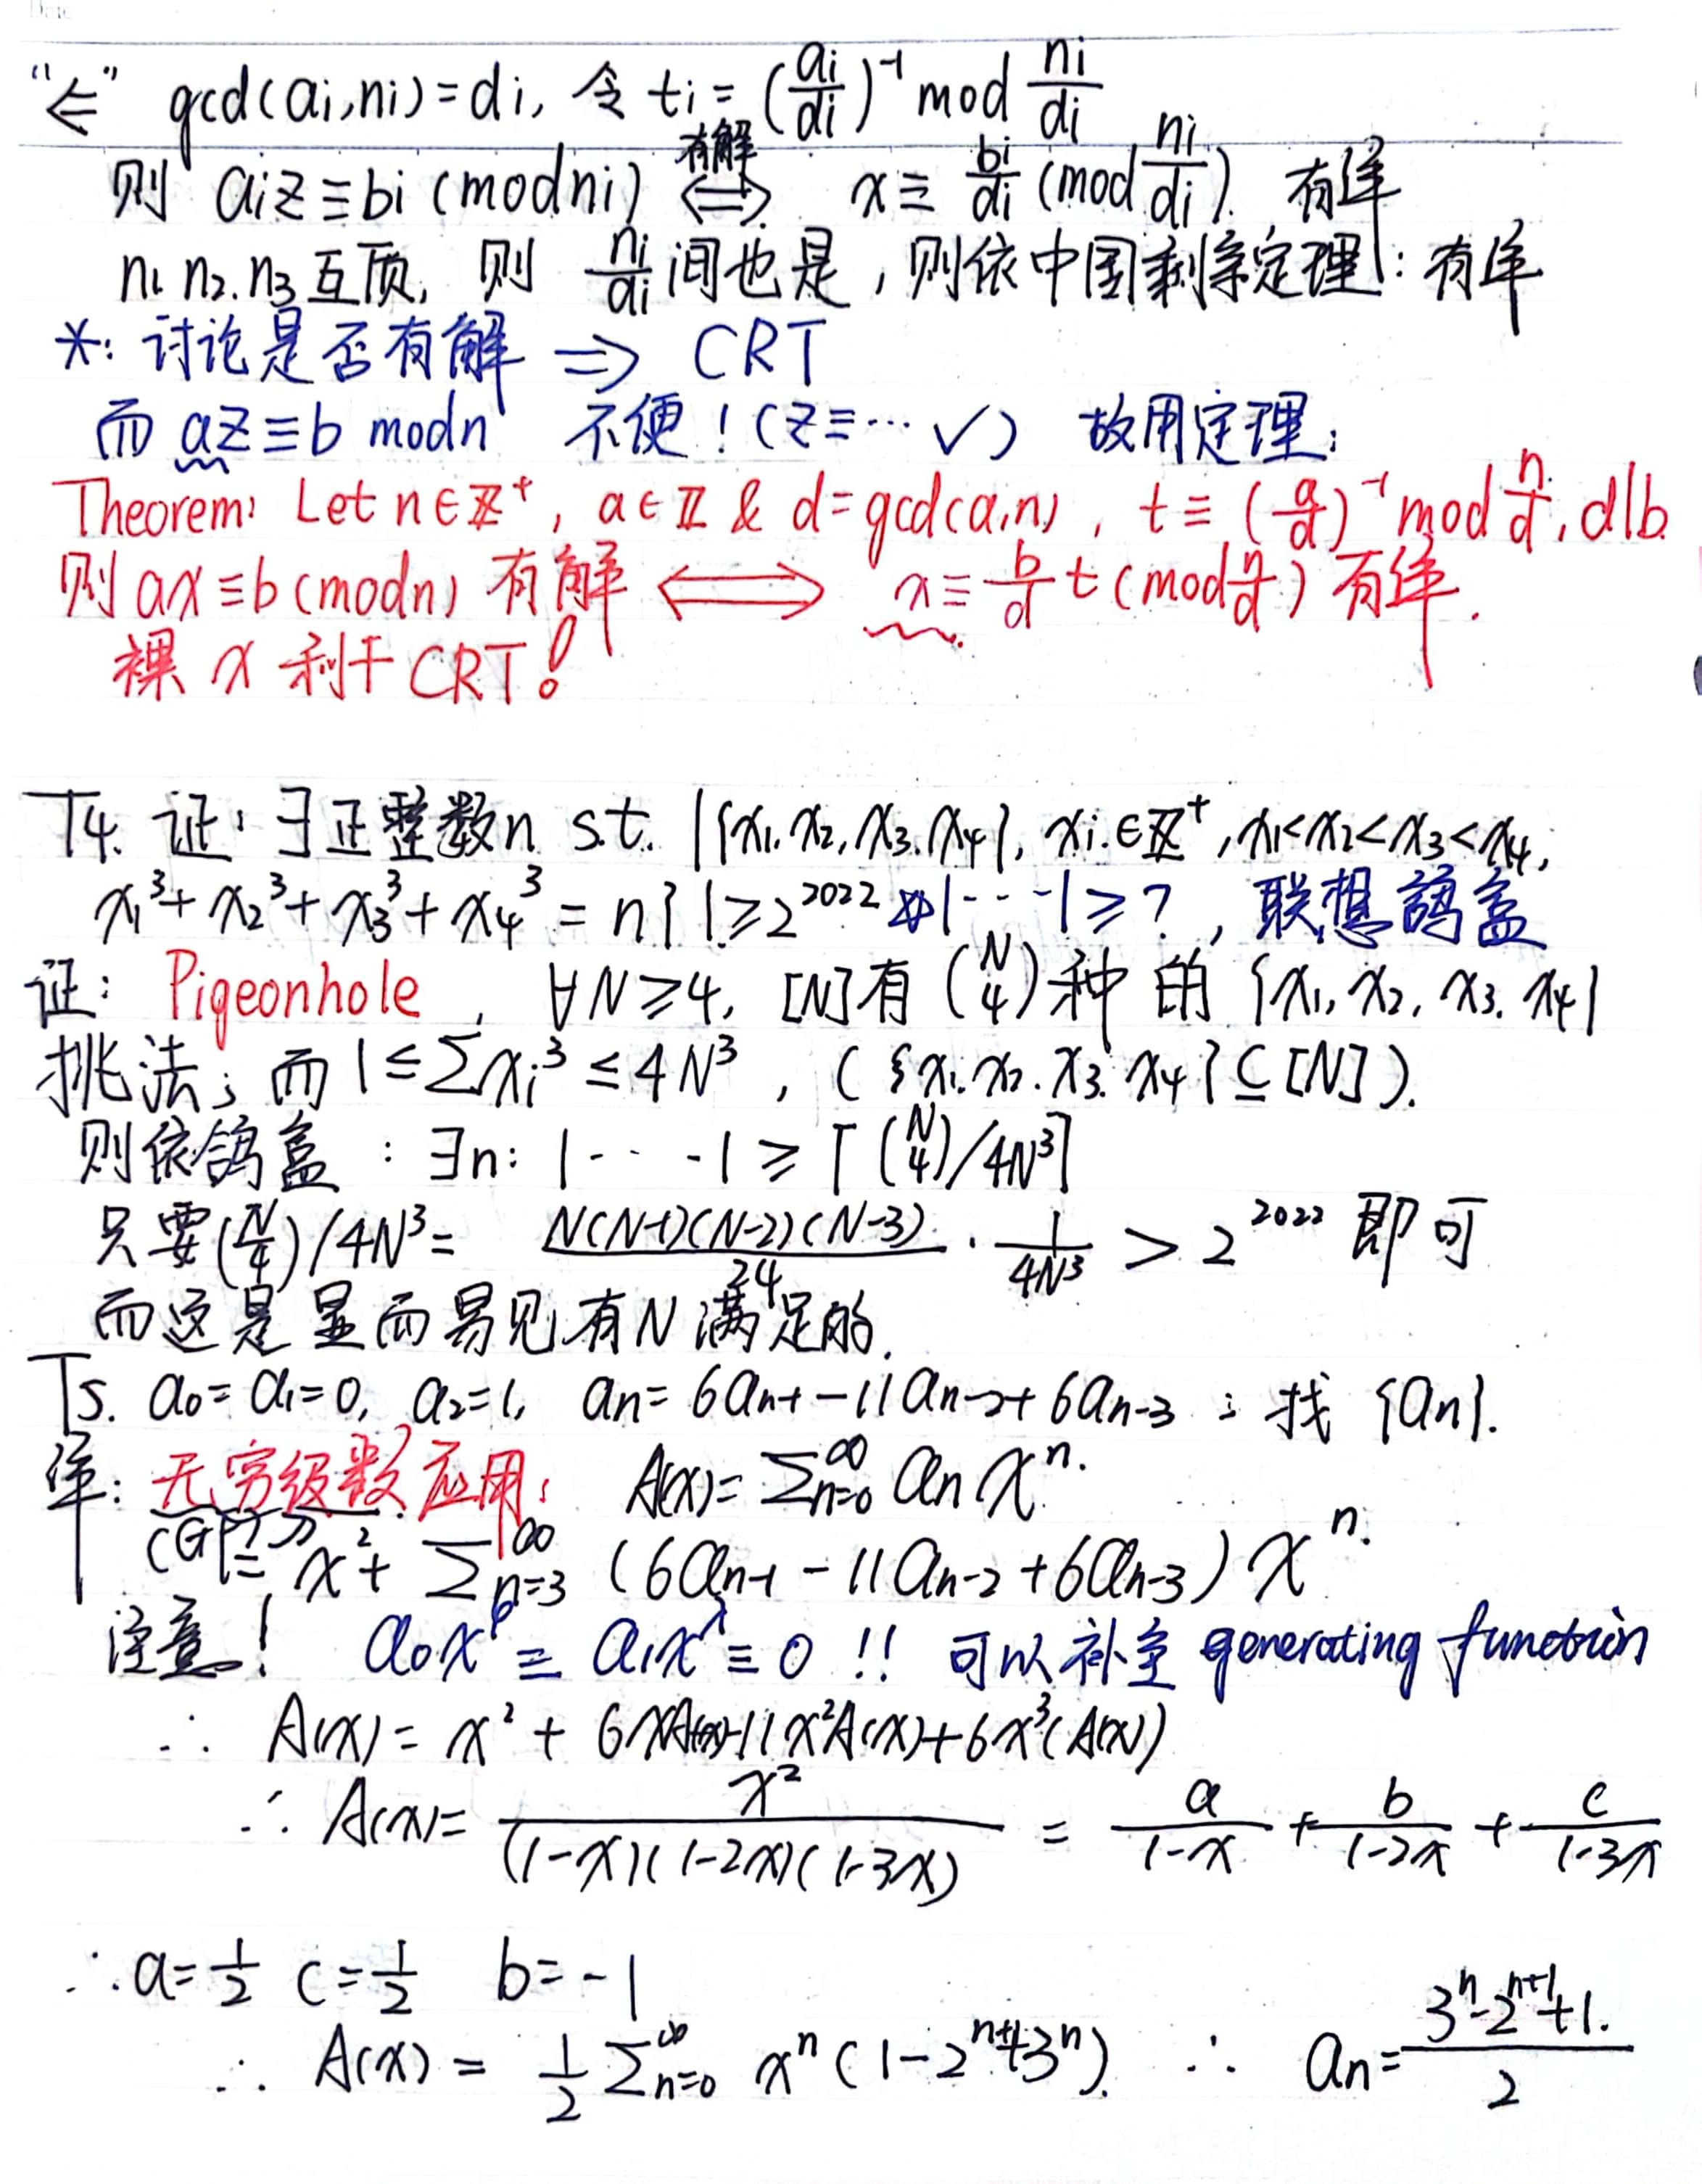 Date
"⇐" gcd(ai,ni)=di, 令 ti = (ai/di)⁻¹ mod ni/di
则 aiz≡bi (mod ni) ⇔(有解) x≡ bi/di (mod ni/di). 有解
n1 n2.n3 互质, 则 ni/di 间也是, 则依中国剩余定理: 有解
*: 讨论是否有解 ⇒ CRT
而 az≡b mod n 不便! (z≡… ✓) 故用定理:
Theorem: Let n∈ℤ⁺, a∈ℤ & d=gcd(a,n), t≡(a/d)⁻¹ mod n/d, d|b.
则 ax≡b (mod n) 有解 ⟺ x≡ b/d t (mod n/d) 有解.
裸 x 利于 CRT!
T4. 证: ∃正整数n s.t. |{x1,x2,x3,x4}, xi∈ℤ⁺, x1<x2<x3<x4,
x1³+x2³+x3³+x4³ = n}| ≥2²⁰²² |---| ≥?, 联想鸽盒
证: Pigeonhole, ∀N≥4, [N]有 (N 4) 种的 {x1,x2,x3,x4}
挑法; 而 1≤∑xi³≤4N³, ({x1.x2.x3.x4}⊆[N]).
则依鸽盒: ∃n: |---| ≥ ⌈(N 4)/4N³⌉
只要 (N 4)/4N³ = N(N-1)(N-2)(N-3)/24 · 1/4N³ > 2²⁰²² 即可
而这是显而易见有N满足的.
T5. a0=a1=0, a2=1, an=6an-1-11an-2+6an-3; 找 {an}.
解: 无穷级数应用: A(x)=∑_{n=0}^∞ an xⁿ.
(GF) = x²+ ∑_{n=3}^∞ (6an-1-11an-2+6an-3) xⁿ.
注意! a0x⁰ ≡ a1x¹ ≡ 0 !! 可以补全 generating function
∴ A(x)= x² + 6xA(x)-11x²A(x)+6x³(A(x))
∴ A(x)= x²/((1-x)(1-2x)(1-3x)) = a/(1-x) + b/(1-2x) + c/(1-3x)
∴ a=1/2 c=1/2 b=-1
∴ A(x) = 1/2 ∑_{n=0}^∞ xⁿ(1-2ⁿ⁺¹+3ⁿ). ∴ an= (3ⁿ-2ⁿ⁺¹+1.)/2